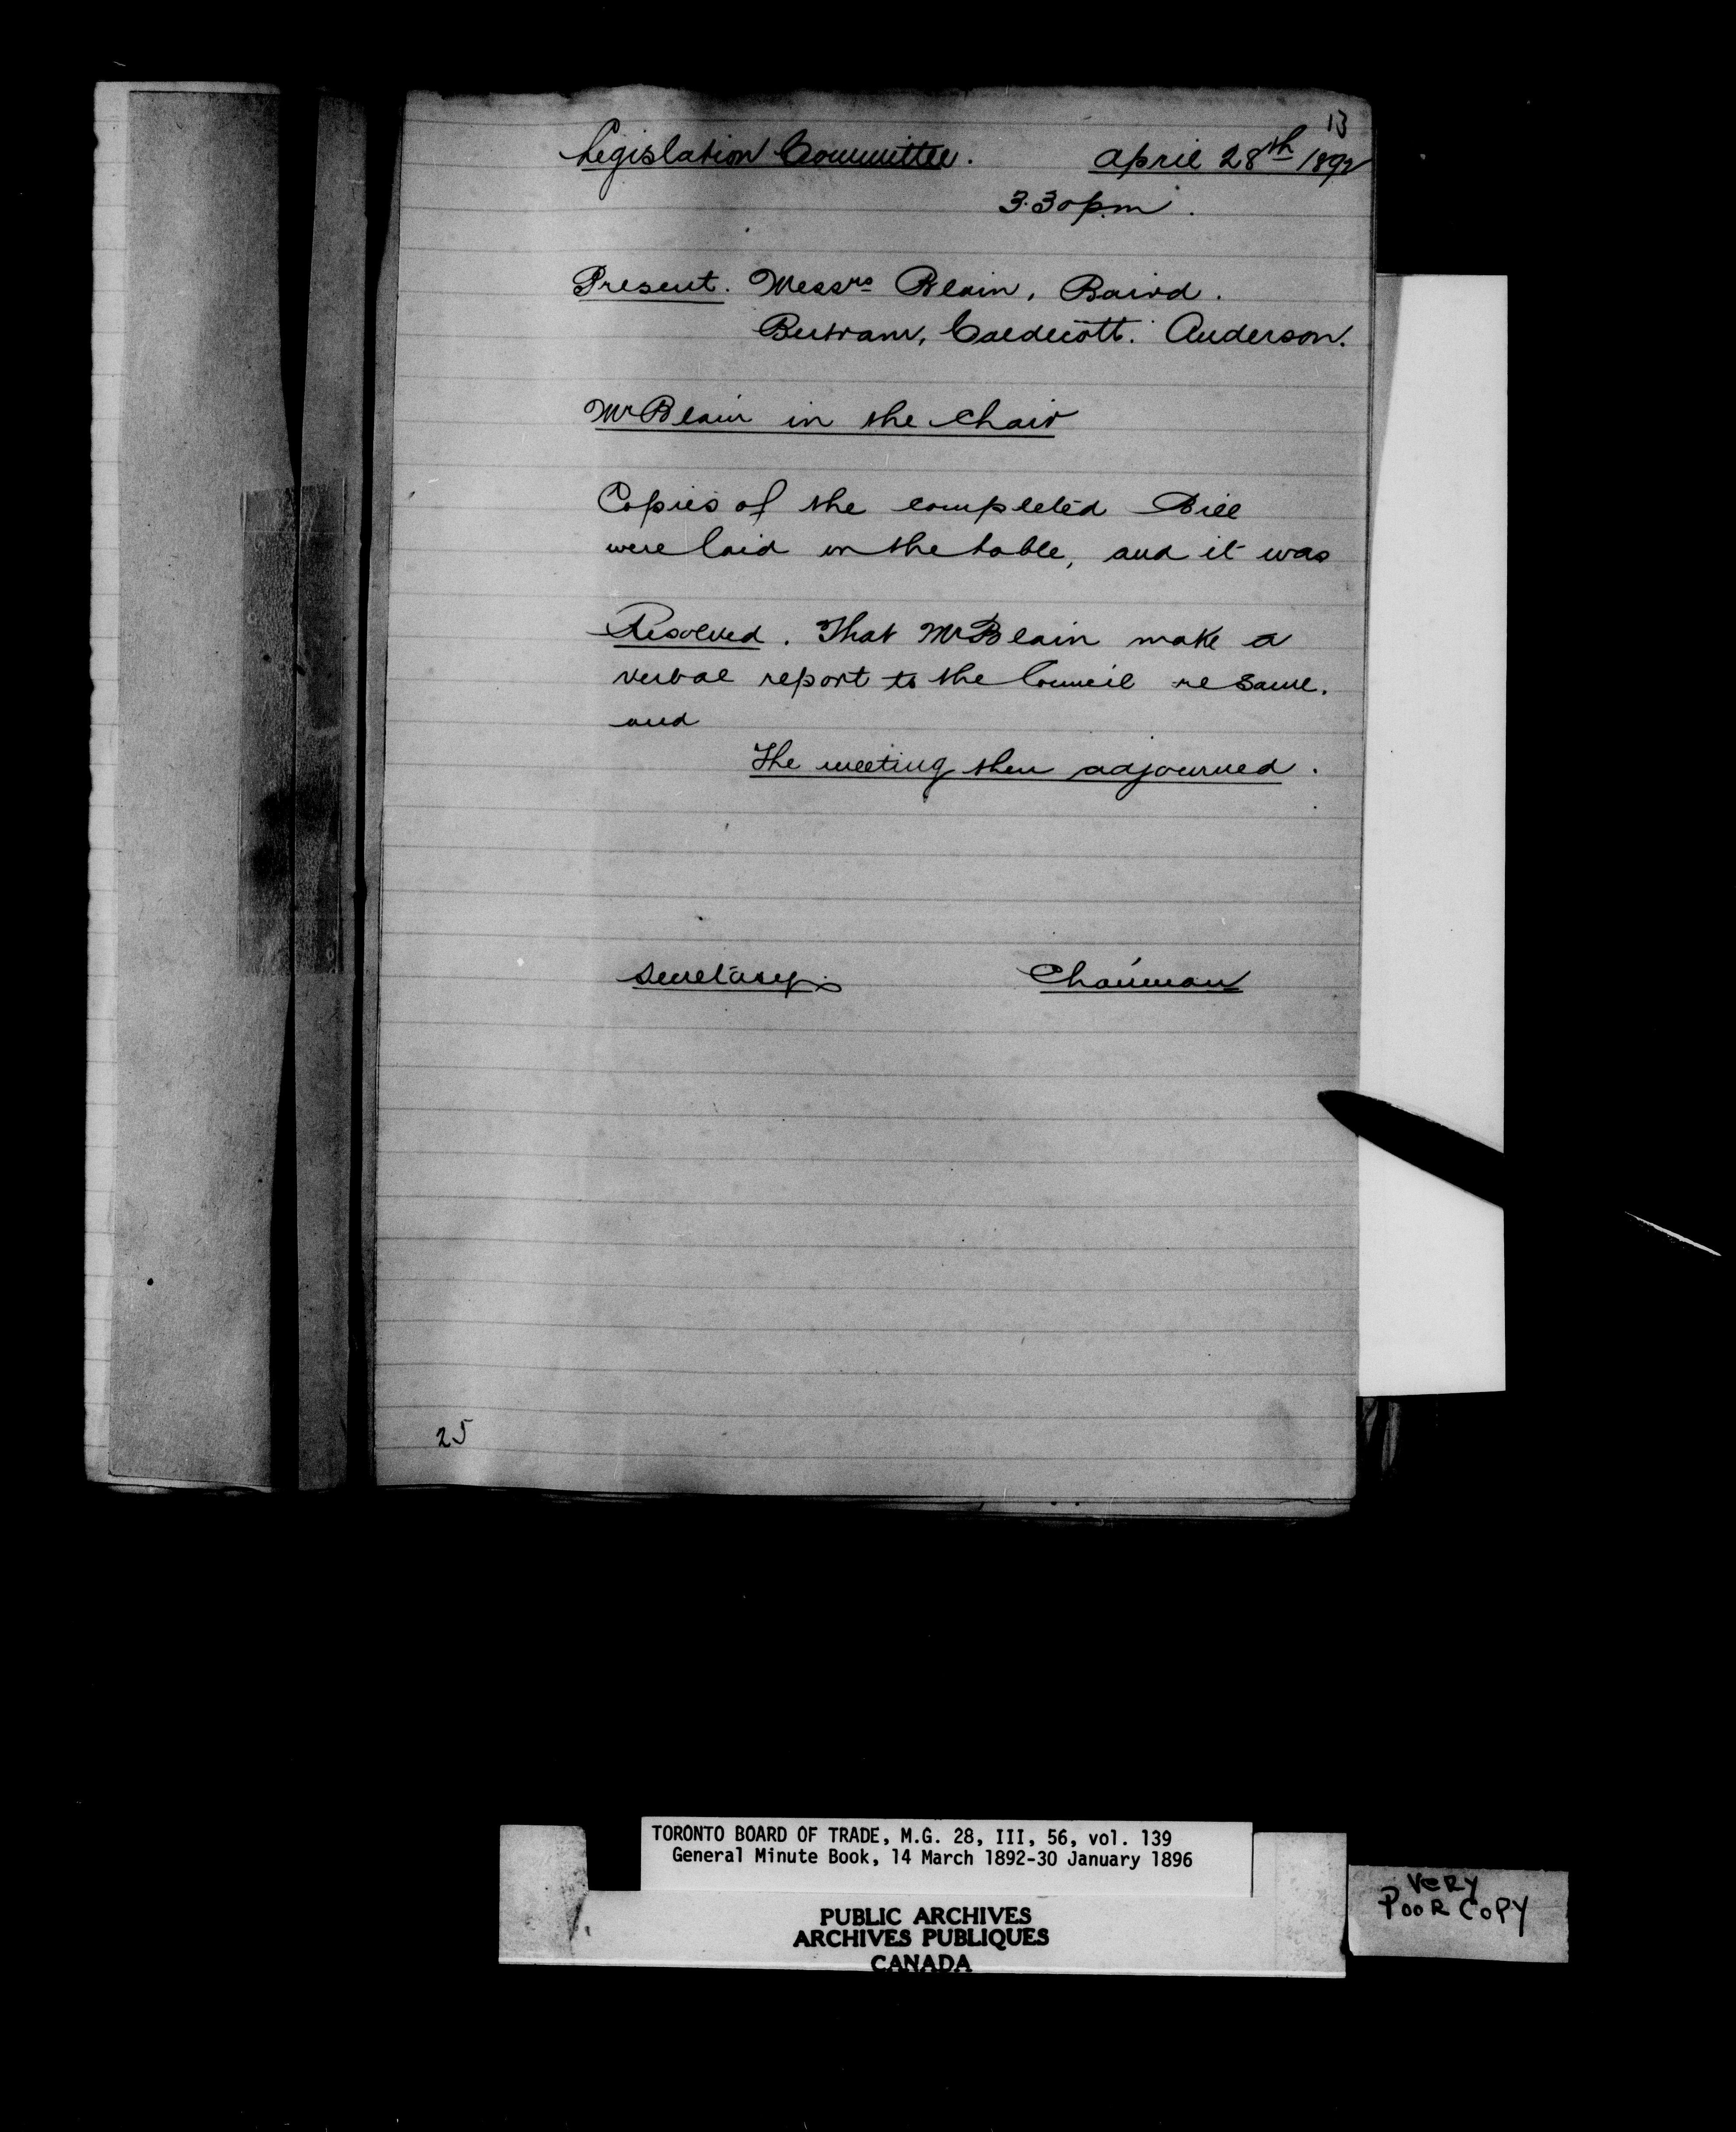 13
Legislation Committee. April 28th 1892
3.30 p.m.
Present. Messrs Blain, Baird.
Bertram, Caldecott. Anderson.
Mr Blain in the Chair
Copies of the completed Bill
were laid on the table, and it was
Resolved. That Mr Blain make a
verbal report to the Council re same.
and
The meeting then adjourned.
Secretary Chairman
25
TORONTO BOARD OF TRADE, M.G. 28, III, 56, vol. 139
General Minute Book, 14 March 1892-30 January 1896
PUBLIC ARCHIVES
ARCHIVES PUBLIQUES
CANADA
VERY
POOR COPY